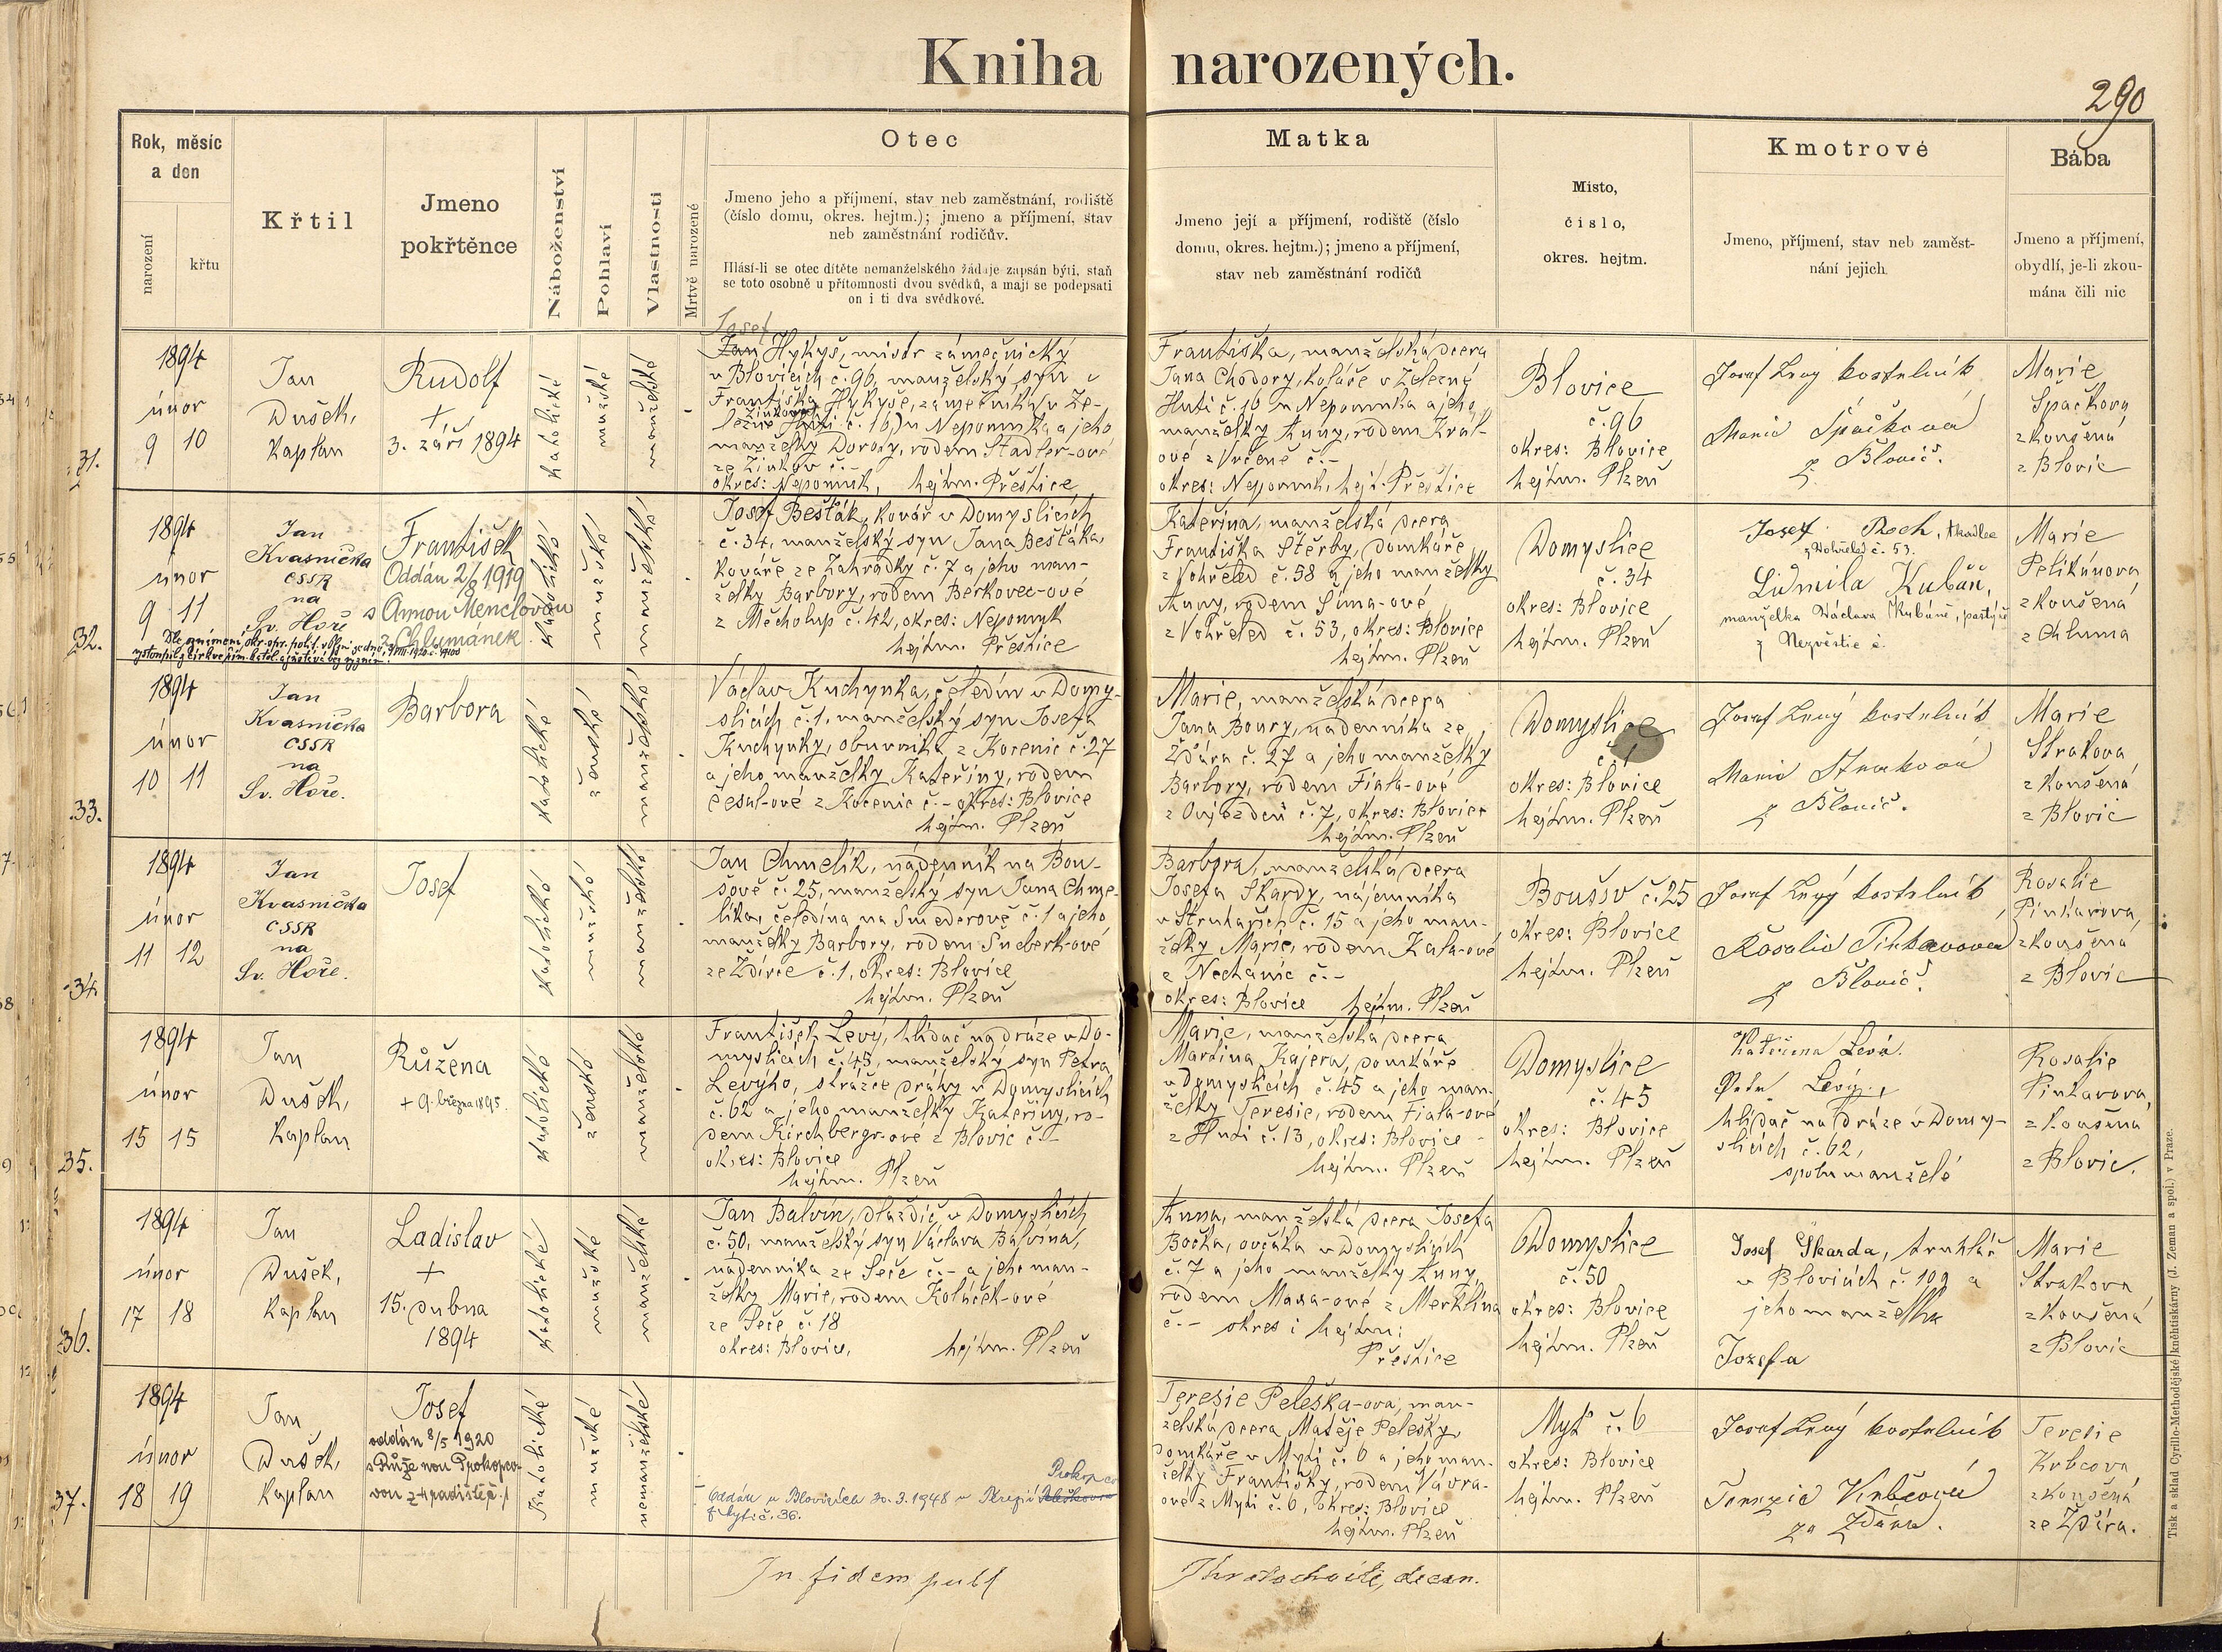 Kniha narozených.
290
Rok, měsíc
a den
narození
křtu
Křtil
Jmeno
pokřtěnce
Náboženství
Pohlaví
Vlastnosti
Mrtvě narozené
Otec
Jmeno jeho a příjmení, stav neb zaměstnání, rodiště
(číslo domu, okres. hejtm.); jmeno a příjmení, stav
neb zaměstnání rodičův.
Hlásí-li se otec dítěte nemanželského žádaje zapsán býti, staň
se toto osobně u přítomnosti dvou svědků, a mají se podepsati
on i ti dva svědkové.
Matka
Jmeno její a příjmení, rodiště (číslo
domu, okres. hejtm.); jmeno a příjmení,
stav neb zaměstnání rodičů
Misto,
číslo,
okres. hejtm.
Kmotrové
Jmeno, příjmení, stav neb zaměst-
nání jejich.
Bába
Jmeno a příjmení,
obydlí, je-li zkou-
mána čili nic
31.
1894
únor
9 10
Jan
Dušek,
Kaplan
Rudolf
+
3. září 1894
katolické
mužské
manželské
Josef
Jan Hykyš, mistr zámečnický
v Blovicích č. 96, manželský syn
Františka Hykyše, zámečníka v Že-
Zinkovy
lezné Huti č. 16, u Nepomuka a jeho
manželky Doroty, rodem Stadler-ové
ze Zinkov č. -
okres: Nepomuk, hejtm. Přeštice
Františka, manželská dcera
Jana Chodory, koláře v Železné
Huti č. 16 u Nepomuka a jeho
manželky Anny, rodem Král-
ové z Vrčeně č. -
okres: Nepomuk, hejt. Přeštice
Blovice
č. 96
okres: Blovice
hejtm. Plzeň
Josef Levý kostelník
Marie Špačková
z Blovic.
Marie
Špačkova
zkoušená
z Blovic
32.
1894
únor
9 11
Jan
Kvasnička
CSSR
na
Sv. Hoře
František
Oddán 2/8 1919
s Annou Menclovou
z Chlumánek.
katolické
mužské
manželské
Josef Bešťák, kovář v Domyslicích
č. 34, manželský syn Jana Bešťáka,
kováře ze Zahrádky č. 7 a jeho man-
želky Barbory, rodem Berkovec-ové
z Měcholup č. 42, okres: Nepomuk
hejtm. Přeštice
Kateřina, manželská dcera
Františka Štěrby, domkáře
z Vohřeled č. 58 a jeho manželky
Anny, rodem Šíma-ové
z Vohřeled č. 53, okres: Blovice
hejtm. Plzeň
Domyslice
č. 34
okres: Blovice
hejtm. Plzeň
Josef Roch, tkadlec
z Vohřeled č. 53.
Lidmila Kubáň,
manželka Václava Kubáně, pastýř
z Nezvěstic č.
Marie
Pelikánova
zkoušená
z Chluma
33.
1894
únor
10 11
Jan
Kvasnička
CSSR
na
Sv. Hoře.
Barbora
katolické
ženské
manželské
Václav Kuchynka, čeledín v Domy-
slicích č. 1, manželský syn Josefa
Kuchynky, obuvníka z Kocenic č. 27
a jeho manželky Kateřiny, rodem
Česal-ové z Kocenic č. - okres: Blovice
hejtm. Plzeň
Marie, manželská dcera
Jana Boury, nádenníka ze
Žďára č. 27 a jeho manželky
Barbory, rodem Fiala-ové
z Oujezdce č. 7, okres: Blovice
hejtm. Plzeň
Domyslice
č. 1
okres: Blovice
hejtm. Plzeň
Josef Levý kostelník
Marie Straková
z Blovic.
Marie
Strakova
zkoušená
z Blovic
34.
1894
únor
11 12
Jan
Kvasnička
CSSR
na
Sv. Hoře.
Josef
katolické
mužské
manželské
Jan Chmelík, nádenník na Bou-
šově č. 25, manželský syn Jana Chme-
líka, čeledína na Smederově č. 1 a jeho
manželky Barbory, rodem Šneberk-ové
ze Ždírce č. 1, okres: Blovice
hejtm. Plzeň
Barbora, manželská dcera
Josefa Škardy, nájemníka
v Struhařích č. 15 a jeho man-
želky Marie, rodem Kala-ové
z Nechanic č. -
okres: Blovice hejtm. Plzeň
Boušov č. 25
okres: Blovice
hejtm. Plzeň
Josef Levý kostelník
Rosalie Pinkavova
z Blovic.
Rosalie
Pinkavova,
zkoušena
z Blovic
35.
1894
únor
15 15
Jan
Dušek,
Kaplan
Růžena
+ 9. března 1895.
katolické
ženské
manželské
František Levý, hlídač na dráze v Do-
myslicích č. 45, manželský syn Petra
Levýho, strážce dráhy v Domyslicích
č. 62 a jeho manželky Kateřiny, ro-
dem Kirchberger-ové z Blovic č. -
okres: Blovice
hejtm. Plzeň
Marie, manželská dcera
Martina Kajera, domkáře
v Domyslicích č. 45 a jeho man-
želky Teresie, rodem Fiala-ové
z Huti č. 13, okres: Blovice
hejtm. Plzeň
Domyslice
č. 45
okres: Blovice
hejtm. Plzeň
Kateřina Levá.
Petr Levý,
hlídač na dráze v Domy-
slicích č. 62,
spolu manželé
Rosalie
Pinkavova,
zkoušena
z Blovic.
36.
1894
únor
17 18
Jan
Dušek,
Kaplan
Ladislav
+
15. dubna
1894
katolické
mužské
manželské
Jan Balvín, dlaždič v Domyslicích
č. 50, manželský syn Václava Balvína,
nádenníka ze Seče č. - a jeho man-
želky Marie, rodem Koláček-ové
ze Seče č. 18
okres: Blovice, hejtm. Plzeň
Anna, manželská dcera Josefa
Bočka, ovčáka v Domyslicích
č. 7 a jeho manželky Anny,
rodem Maxa-ové z Merklína
č. - okres i hejtm:
Přeštice
Domyslice
č. 50
okres: Blovice
hejtm. Plzeň
Josef Škarda, truhlář
v Blovicích č. 109 a
jeho manželka
Jozefa
Marie
Strakova
zkoušená
z Blovic
37.
1894
únor
18 19
Jan
Dušek,
Kaplan
Josef
oddán 8/5 1920
s Růženou Prokopco-
vou
katolické
mužské
nemanželské
Prokopco
Oddán v Blovicích 30. 3. 1948 s Terezií Peleškovou
z Mytě č. 36.
Teresie Peleška-ova, man-
želská dcera Matěje Pelešky
domkáře v Myti č. 6 a jeho man-
želky Františky, rodem Vávra-
ové z Myti č. 6, okres: Blovice
hejtm. Plzeň
Myť č. 6
okres: Blovice
hejtm. Plzeň
Josef Levý kostelník
Terezie Krbcová
ze Zdíra.
Teresie
Krbcova
zkoušená
ze Zdíra.
In fidem publ
decan.
Tisk a sklad Cyrillo-Methodějské kněhtiskárny (J. Zeman a spol.) v Praze.